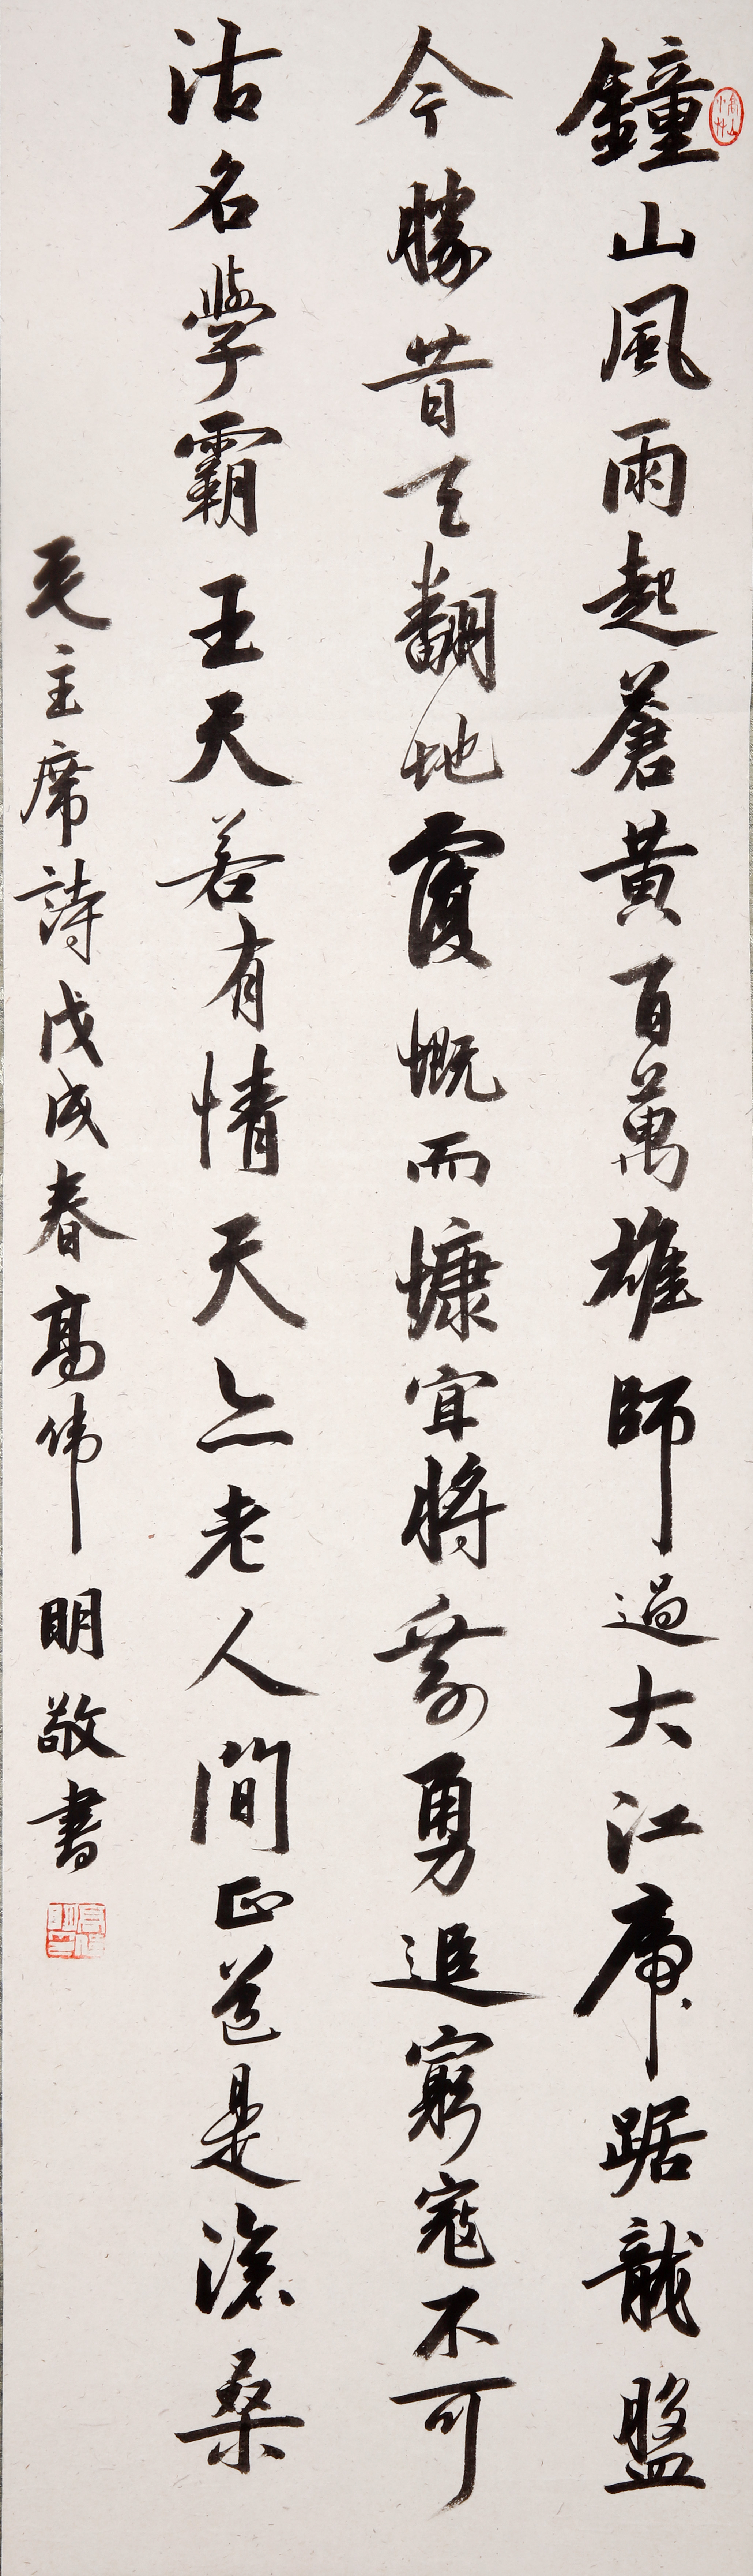 鐘山風雨起蒼黃百萬雄師過大江虎踞龍盤
今勝昔天翻地覆慨而慷宜將剩勇追窮寇不可
沽名學霸王天若有情天亦老人間正道是滄桑
毛主席詩戊戌春高伟明敬書